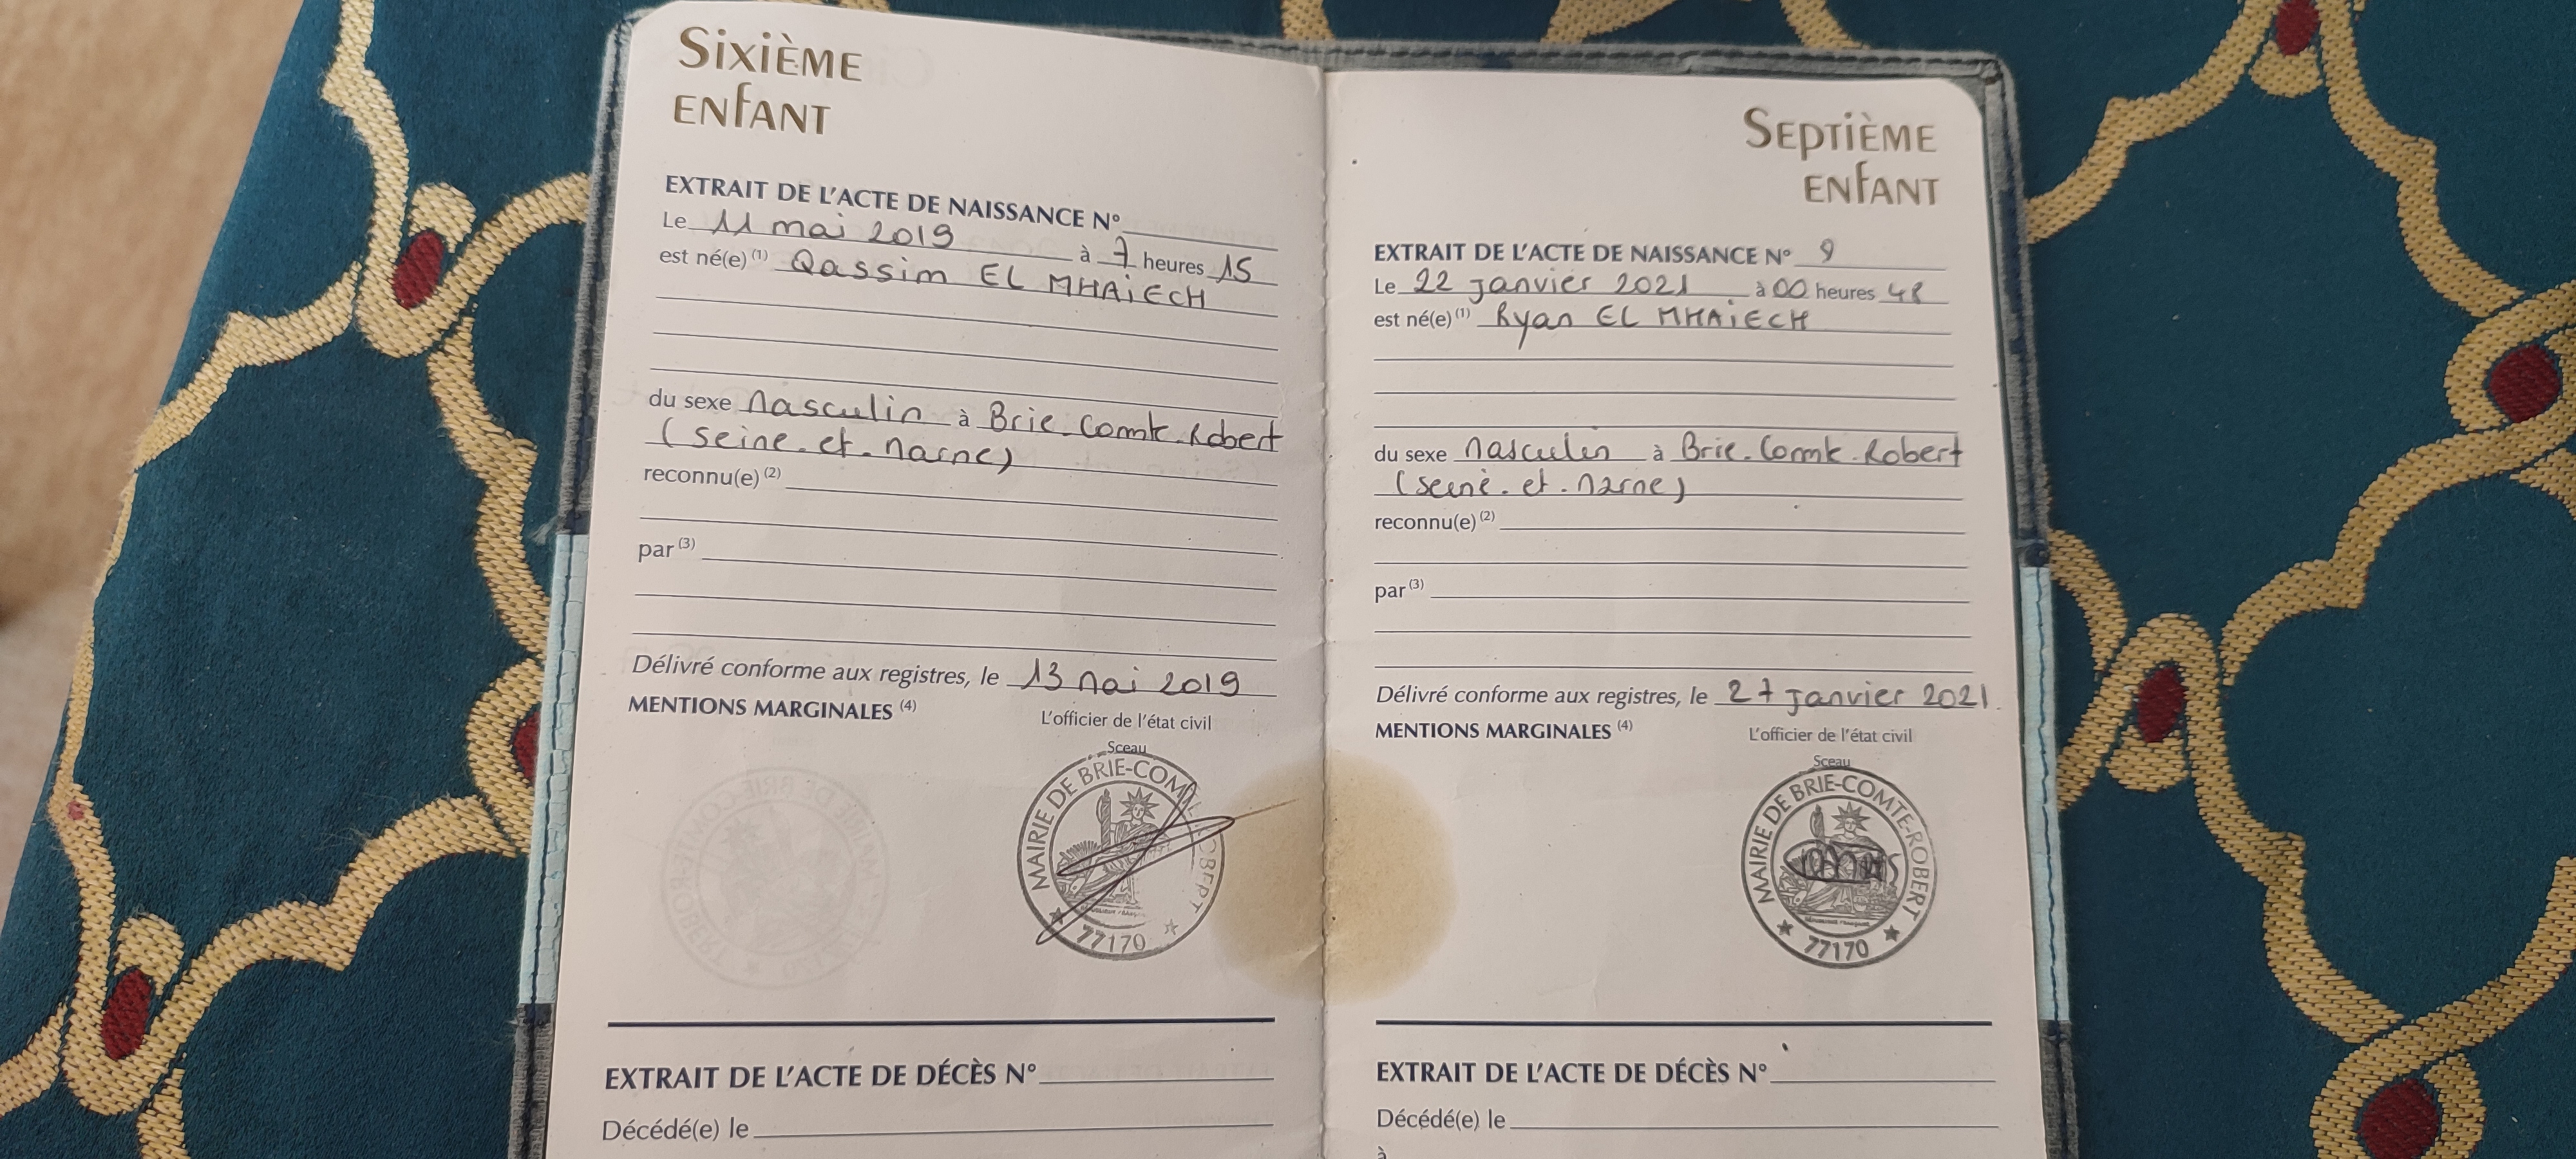 Sixième
enfant
EXTRAIT DE L'ACTE DE NAISSANCE N°
Le 11 mai 2019 à 7 heures 15
est né(e) (1) Qassim EL MHAiECH
du sexe Masculin à Brie.Comte.Robert
(Seine.et.Marne)
reconnu(e) (2)
par (3)
Délivré conforme aux registres, le 13 Mai 2019
MENTIONS MARGINALES (4)
L'officier de l'état civil
Sceau
MAIRIE DE BRIE-COM
77170
EXTRAIT DE L'ACTE DE DÉCÈS N°
Décédé(e) le
Septième
enfant
EXTRAIT DE L'ACTE DE NAISSANCE N° 9
Le 22 janvier 2021 à 00 heures 48
est né(e) (1) Ryan EL MHAiECH
du sexe Masculin à Brie.Comte.Robert
(Seine.et.Marne)
reconnu(e) (2)
par (3)
Délivré conforme aux registres, le 27 janvier 2021
MENTIONS MARGINALES (4)
L'officier de l'état civil
Sceau
MAIRIE DE BRIE-COMTE-ROBERT
77170
EXTRAIT DE L'ACTE DE DÉCÈS N°
Décédé(e) le
à